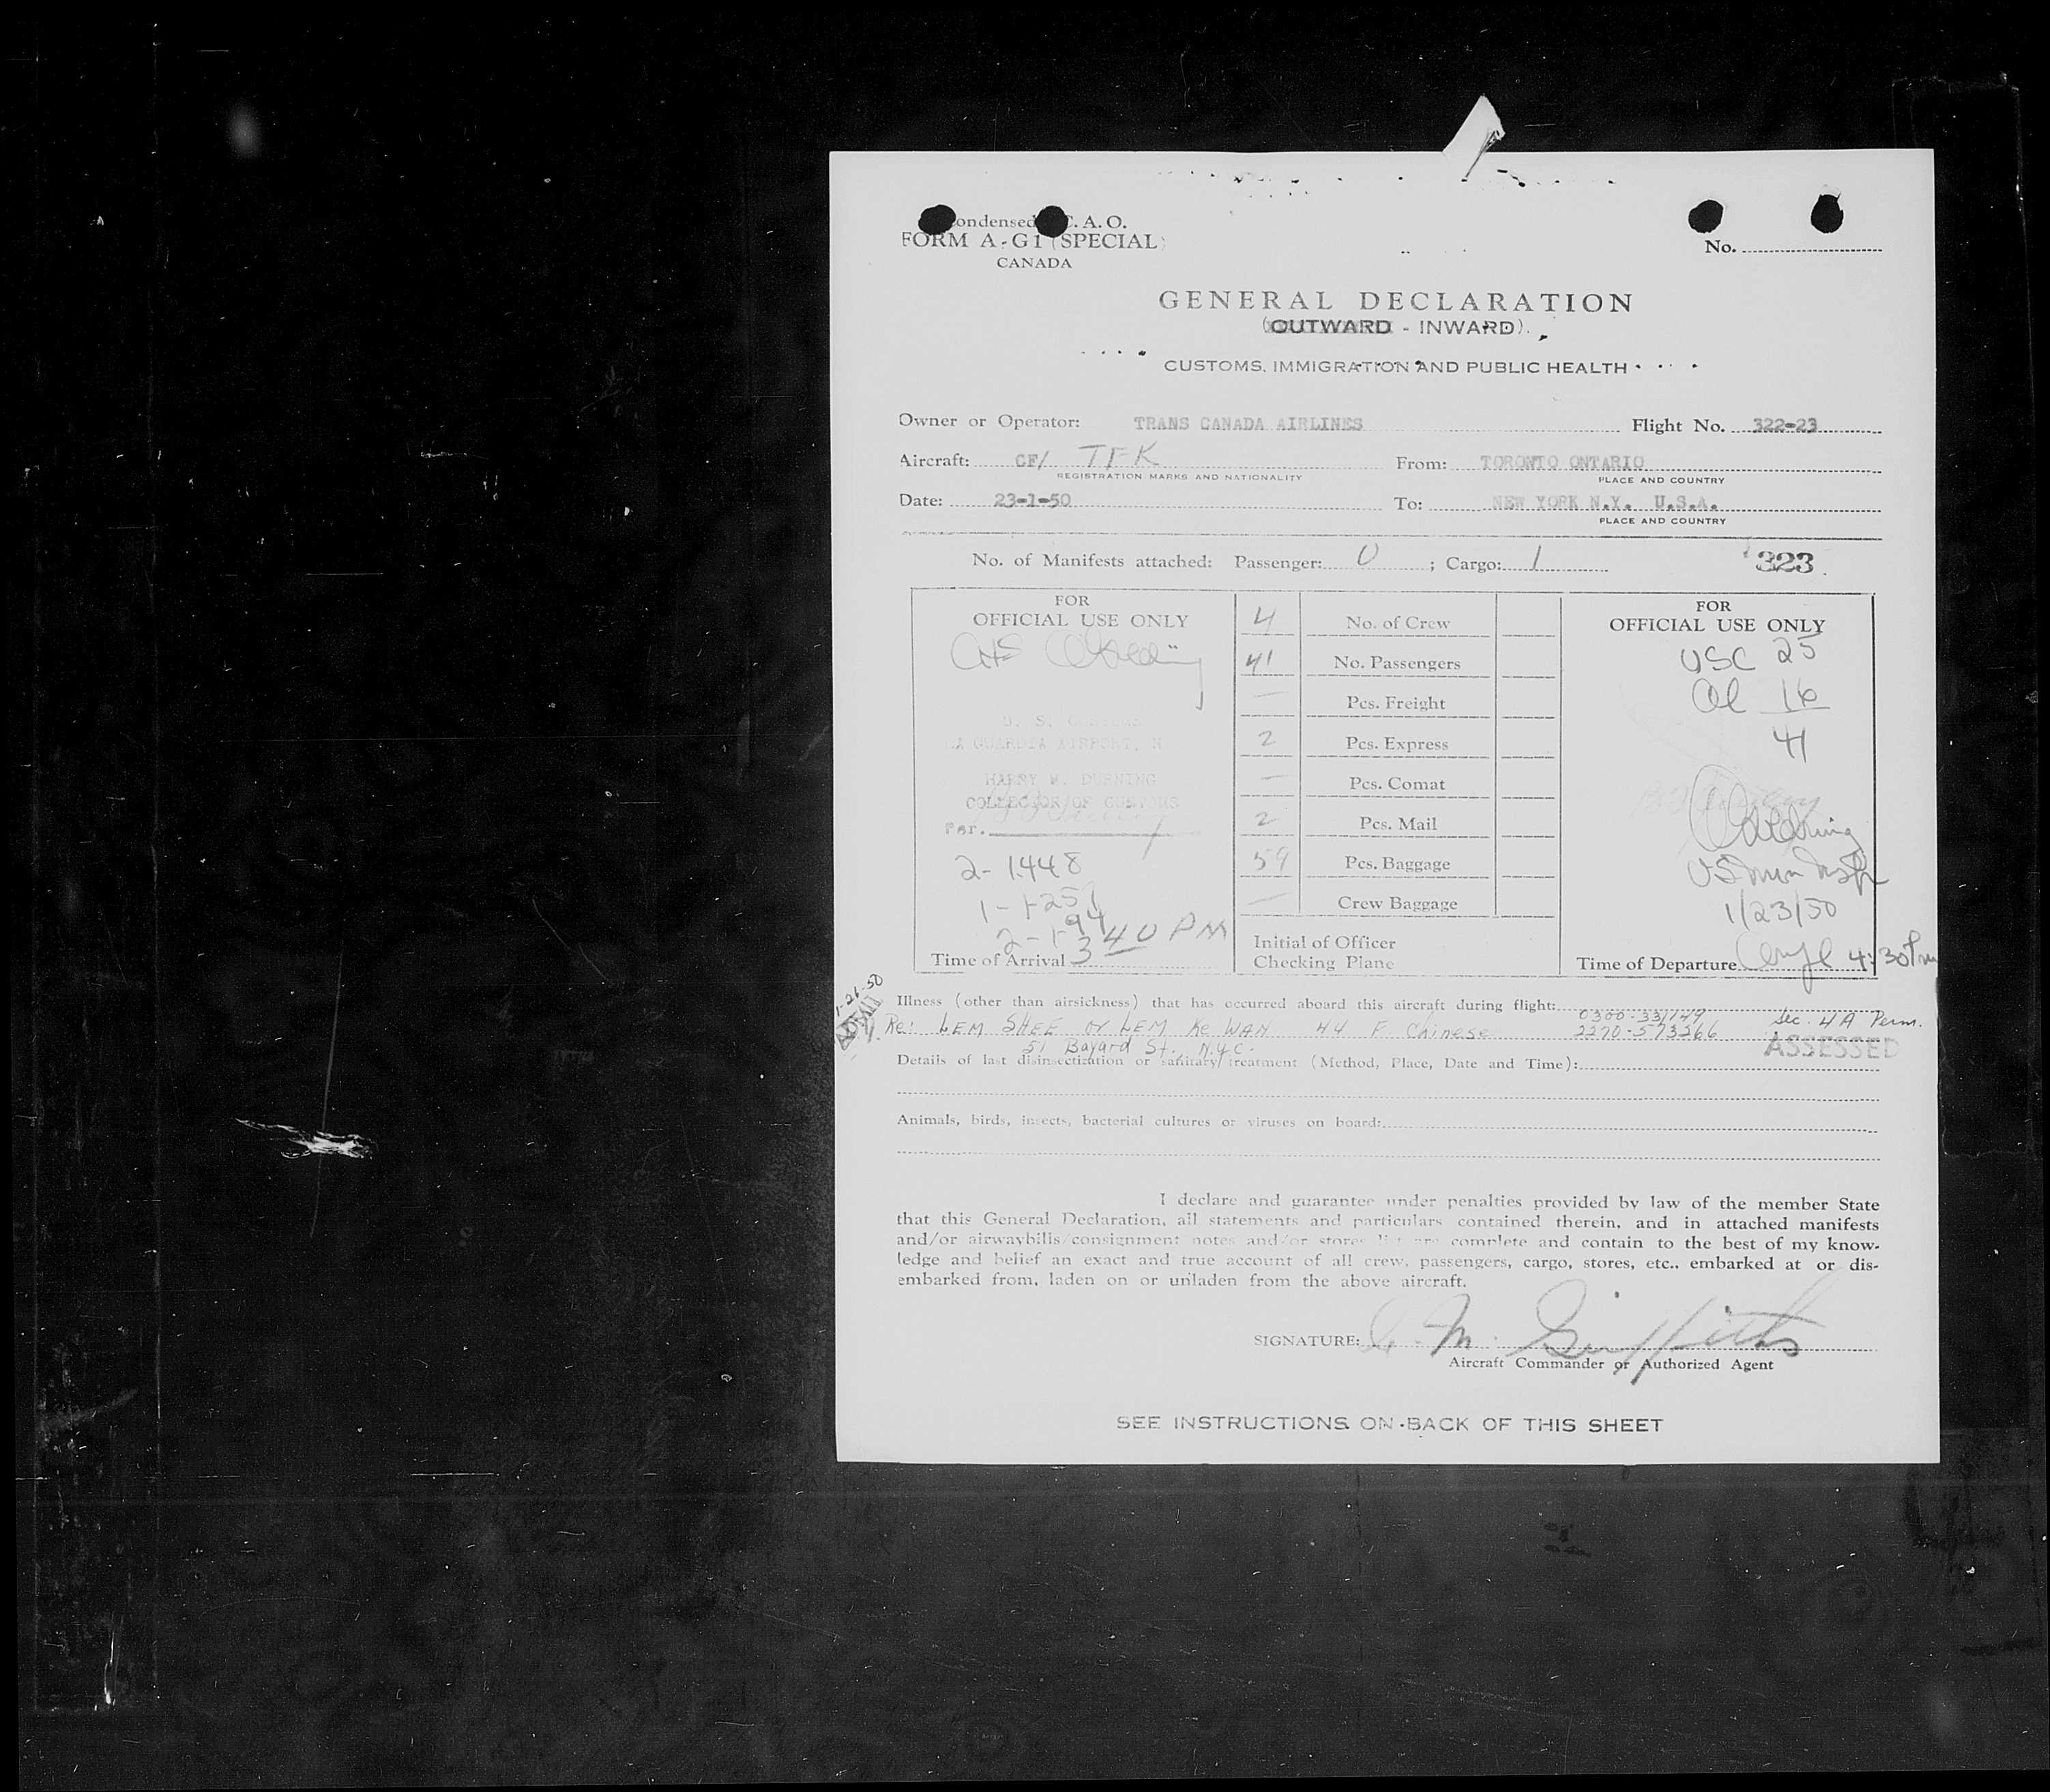 ondensed C. A. O.
FORM A-G1 (SPECIAL)
CANADA
No.
GENERAL DECLARATION
(OUTWARD - INWARD)
CUSTOMS, IMMIGRATION AND PUBLIC HEALTH
Owner or Operator: TRANS CANADA AIRLINES Flight No. 322-23
Aircraft: CF/ TFK From: TORONTO ONTARIO
REGISTRATION MARKS AND NATIONALITY PLACE AND COUNTRY
Date: 23-1-50 To: NEW YORK N.Y. U.S.A.
PLACE AND COUNTRY
No. of Manifests attached: Passenger: 0 ; Cargo: 1 323
FOR
OFFICIAL USE ONLY
U. S. CUSTOMS
LA GUARDIA AIRPORT, N
HARRY M. DURNING
COLLECTOR OF CUSTOMS
Per.
2- 1448
1-1-257
2-1-94
3 40 PM
Time of Arrival
4 No. of Crew
41 No. Passengers
— Pcs. Freight
2 Pcs. Express
— Pcs. Comat
2 Pcs. Mail
59 Pcs. Baggage
— Crew Baggage
Initial of Officer
Checking Plane
FOR
OFFICIAL USE ONLY
USC 25
Al 16
41
US Imm Insp
1/23/50
Time of Departure 4:30 Pm
1-26-50
Illness (other than airsickness) that has occurred aboard this aircraft during flight:
0300-331149 Sec. 4A Perm.
Re: LEM SHEE or LEM Ke WAN 44 F Chinese 2270-573266
51 Bayard St. N.Y.C. ASSESSED
Details of last disinsectization or sanitary treatment (Method, Place, Date and Time):
Animals, birds, insects, bacterial cultures or viruses on board:
I declare and guarantee under penalties provided by law of the member State
that this General Declaration, all statements and particulars contained therein, and in attached manifests
and/or airwaybills/consignment notes and/or stores list are complete and contain to the best of my know-
ledge and belief an exact and true account of all crew, passengers, cargo, stores, etc., embarked at or dis-
embarked from, laden on or unladen from the above aircraft.
SIGNATURE: M. Griffiths
Aircraft Commander or Authorized Agent
SEE INSTRUCTIONS ON BACK OF THIS SHEET